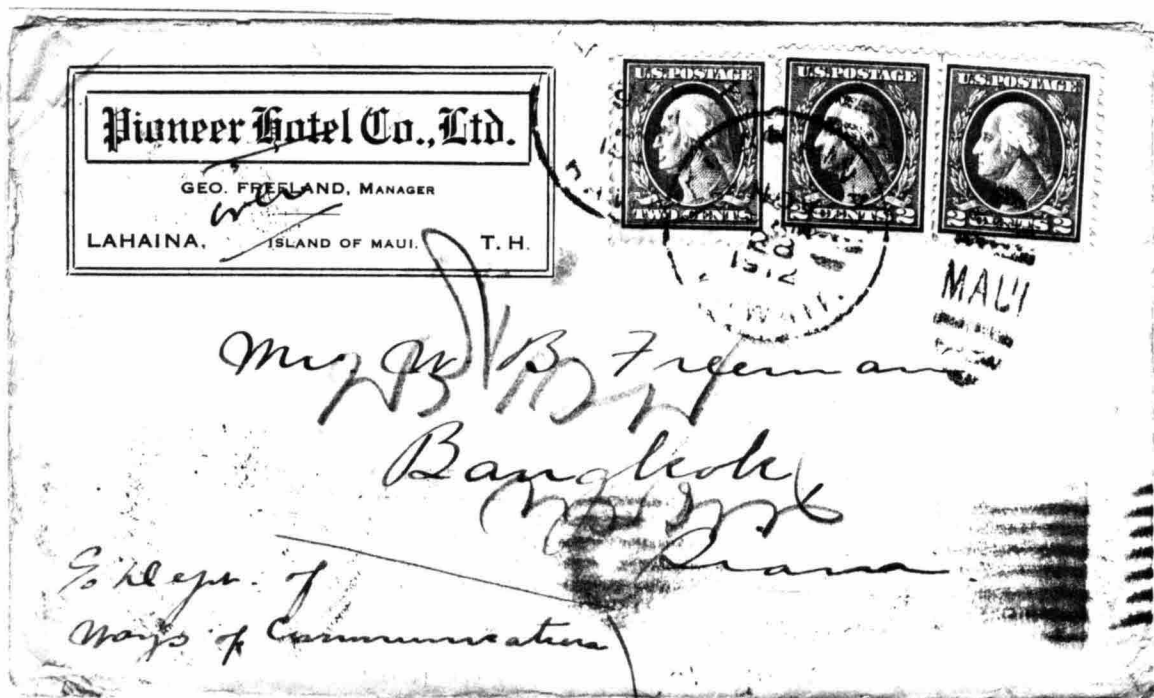 Pioneer Hotel Co., Ltd.
GEO. FREELAND, MANAGER
LAHAINA, ISLAND OF MAUI. T. H.
U.S.POSTAGE
TWO CENTS
U.S.POSTAGE
2 CENTS 2
U.S.POSTAGE
2 CENTS 2
1912
HAWAII.
MAUI
Mr. W. B. Freeman
Bangkok
Siam
c/o Dept. of
Ways of Communication